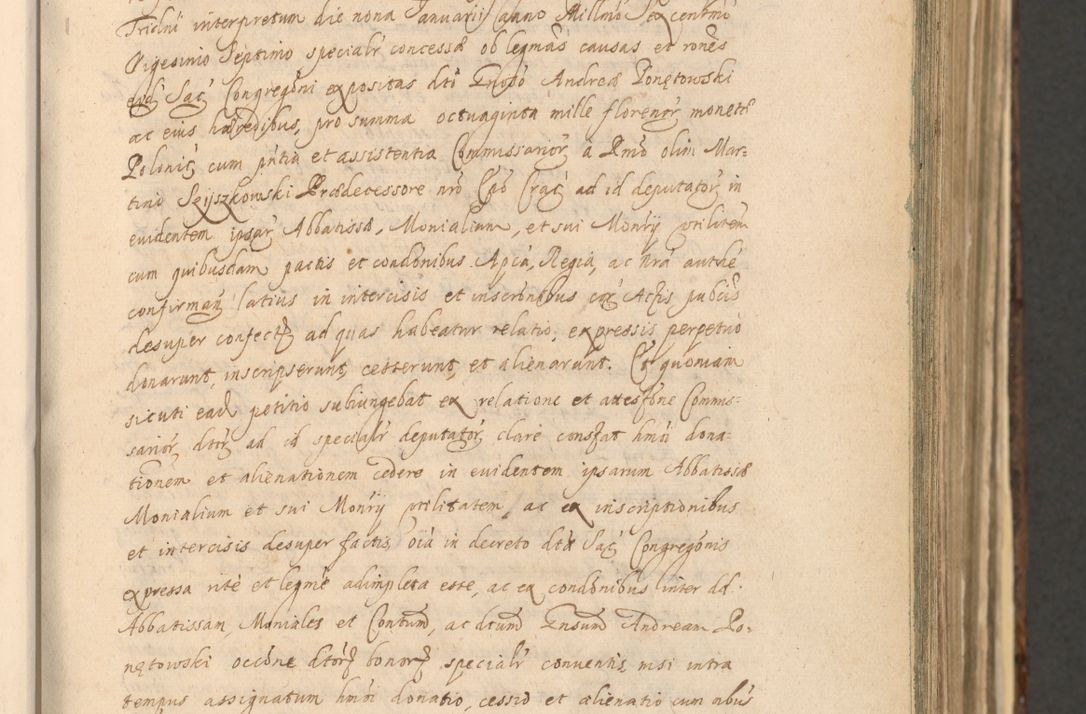 Tridni interpretum die nona Januarii anno Millmo Sexcentmo
Vigesimo Septimo specialr concessa ob legmas causas et rones
eid Sac Congregoni expositas dto Gnoso Andreæ Ponętowski
ac eius hæredibus, pro summa octuaginta mille florenor monetæ
Polonic cum pntia et assistentia Commissarior a Rmo olim Mar=
tino Szyszkowski Prædecessore nro Epo Crac ad id deputator in
euidentem ipsar Abbatissæ, Monialium, et sui Monrij vtilitem
cum quibusdam pactis et condonibus Aplca, Regia, ac nra authe
confirman latius in intercisis et inscronibus cor Actis publicis
desuper confectis ad quas habeatur relatio, expressis perpetuo
donarunt, inscripserunt, cesserunt, et alienarunt. Et quoniam
sicuti ead petitio subiungebat ex relatione et attestone Commis=
sarior dtor ad id specialr deputator clare constat hmoi dona=
tionem et alienationem cedere in euidentem ipsarum Abbatissæ
Monialium et sui Monrij vtilitatem, ac ea inscriptionibus
et intercisis desuper factis, oia in decreto dtæ Sac Congregonis
expressa rite et legme adimpleta esse, ac ex condonibus inter dd.
Abbatissam, Moniales et Contum, ac dtum Gnsum Andream Po=
nętowski occone dtor bonor specialr conuentis, nisi intra
tempus assignatum hmoi donatio, cessio et alienatio cum abus